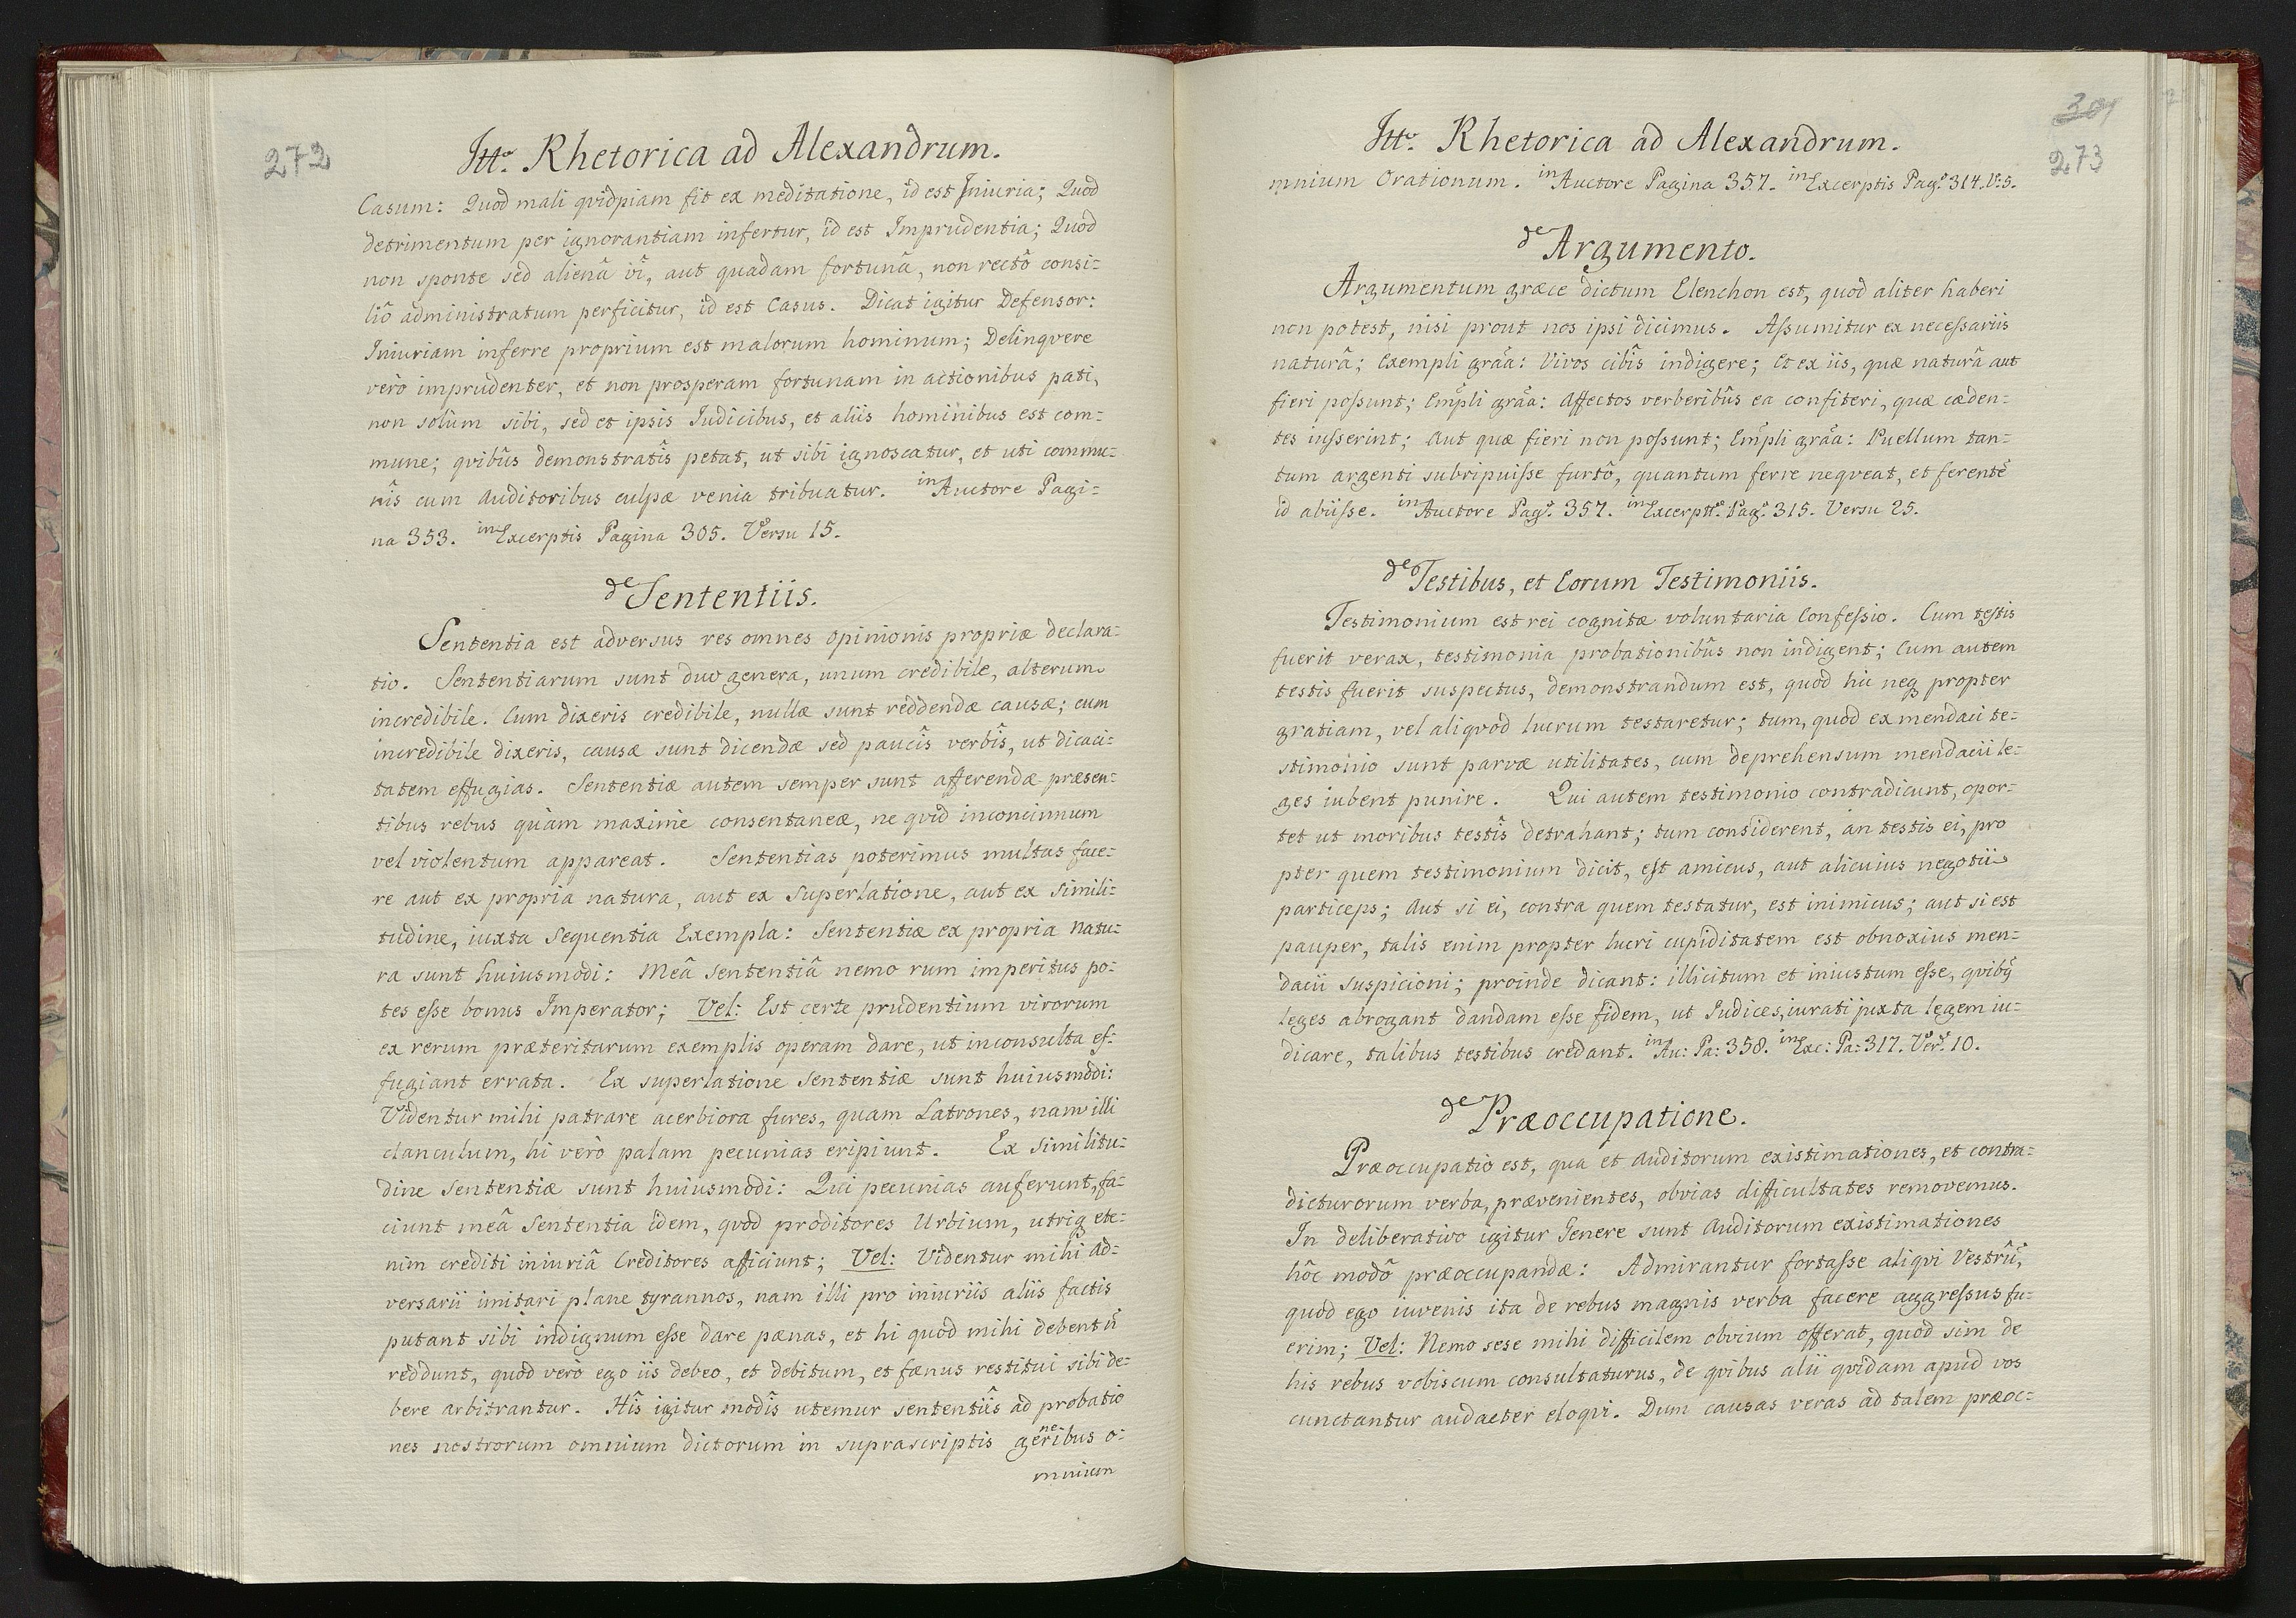 272
Itt.º Rhetorica ad Alexandrum.
Casum: Quod mali qvidpiam fit ex meditatione, id est Iniuria; Quod
detrimentum per ignorantiam infertur, id est Imprudentia; Quod
non sponte sed alienâ vi, aut quadam fortunâ, non rectô consi:
liô administratum perficitur, id est Casus. Dicat igitur Defensor:
Iniuriam inferre proprium est malorum hominum; Delinqvere
verò imprudenter, et non prosperam fortunam in actionibus pati,
non solùm sibi, sed et ipsis Iudicibus, et aliis hominibus est com:
mune; qvibûs demonstratîs petat, ut sibi ignoscatur, et uti commu:
nîs cum Auditoribus culpæ venia tribuatur. in Auctore Pagi:
na 353. in Excerptis Pagina 305. Versu 15.
de Sententiis.
Sententia est adversus res omnes opinionis propriæ declara:
tio. Sententiarum sunt duo genera, unum credibile, alterum
incredibile. Cum dixeris credibile, nullæ sunt reddendæ causæ; cum
incredibile dixeris, causæ sunt dicendæ sed paucîs verbîs, ut dicaci:
tatem effugias. Sententiæ autem semper sunt afferendæ præsen:
tibus rebus quàm maximè consentaneæ, ne qvid inconcinnum
vel violentum appareat. Sententias poterimus multas face:
re aut ex propria natura, aut ex superlatione, aut ex simili:
tudine, iuxta Sequentia Exempla: Sententiæ ex propria Natu:
ra sunt huiusmodi: Meâ sententiâ nemo rum imperitus po:
tes esse bonus Imperator; Vel: Est certe prudentium virorum
ex rerum præteritarum exemplis operam dare, ut inconsulta ef:
fugiant errata. Ex superlatione Sententiæ sunt huiusmodi:
Videntur mihi patrare acerbiora fures, quam Latrones, nam illi
clanculum, hi verò palam pecunias eripiunt. Ex Similitu:
dine Sententiæ sunt huiusmodi: Qui pecunias auferunt, fa:
ciunt meâ Sententia idem, qvod proditores Urbium, utriq ete:
nim crediti iniuriâ Creditores afficiunt; Vel: Videntur mihi Ad:
versarii imitari plane tyrannos, nam illi pro iniuriis aliis factis
putant sibi indignum esse dare pœnas, et hi quod mihi debent ñ
reddunt, quod verò ego iis debeo, et debitum, et fœnus restitui sibi de:
bere arbitrantur. Hîs igitur modîs utemur sententiîs ad probatio
nes nostrorum omnium dictorum in suprascriptis generibus o:
mnium
309
273
Itt.º Rhetorica ad Alexandrum.
mnium Orationum. in Auctore Pagina 357. in Excerptis Pag.ª 314. V: 5.
de Argumento.
Argumentum græce dictum Elenchon est, quod aliter haberi
non potest, nisi prout nos ipsi dicimus. Assumitur ex necessariis
naturâ; Exempli grãa: Vivos cibîs indigere; Et ex iis, quæ naturâ aut
fieri possunt; Empli grãa: Affectos verberibûs ea confiteri, quæ cæden:
tes iusserint; Aut quæ fieri non possunt; Empli grãa: Puellum tan:
tum argenti subripuisse furtô, quantum ferre neqveat, et ferentê
id abiisse. in Auctore Pag.ª 357. in Excerptt.º Pag.ª 315. Versu 25.
de Testibus, et Eorum Testimoniis.
Testimonium est rei cognitæ voluntaria Confessio. Cum testis
fuerit verax, testimonia probationibûs non indigent; Cum autem
testis fuerit suspectus, demonstrandum est, quod hic neq propter
gratiam, vel aliqvod lucrum testaretur; tum, quod ex mendaci te:
stimonio sunt parvæ utilitates, cum deprehensum mendacii le:
ges iubent punire. Qui autem testimonio contradicunt, opor:
tet ut moribus testîs detrahant; tum considerent, an testis ei, pro
pter quem testimonium dicit, est amicus, aut alicuius negotii
particeps; Aut si ei, contra quem testatur, est inimicus; aut si est
pauper, talis enim propter lucri cupiditatem est obnoxius men:
dacii suspicioni; proinde dicant: illicitum et iniustum esse, qvibq
leges abrogant dandam esse fidem, ut Iudices, iurati juxta legem iu:
dicare, talibus testibus credant. in Au: Pa: 358. in Exc: Pa: 317. Ver.º 10.
de Præoccupatione.
Præoccupatio est, qua et Auditorum existimationes, et contra:
dicturorum verba, prævenientes, obvias difficultates removemus.
In deliberativo igitur Genere sunt Auditorum existimationes
hôc modô præoccupandæ: Admirantur fortasse aliqvi Vestrû,
quod ego iuvenis ita de rebus magnis verba facere aggressus fu:
erim; Vel: Nemo sese mihi difficilem obvium offerat, quod sim de
his rebus vobiscum consultaturus, de qvibus alii qvidam apud vos
cunctantur audacter eloqvi. Dum causas veras ad talem præoc: